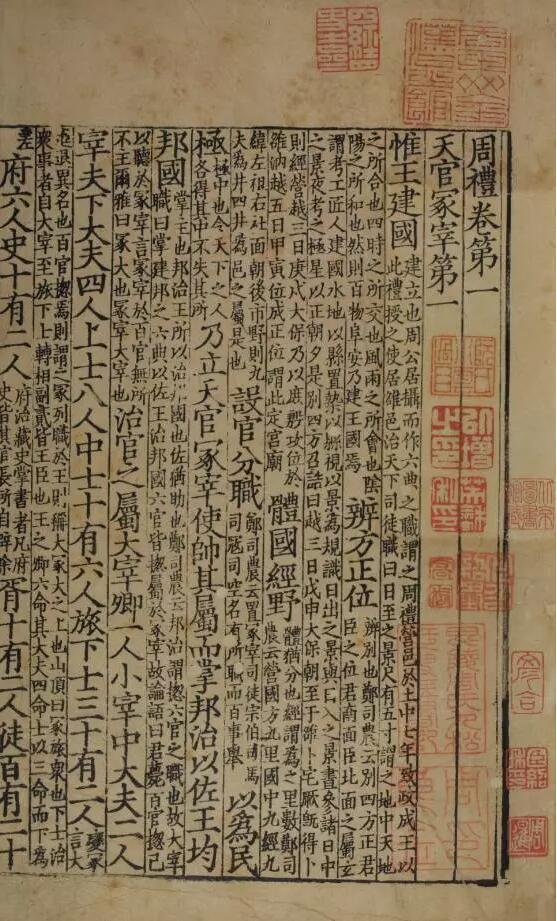 周禮卷第一
天官冢宰第一
惟王建國 建立也周公居攝而作六典之職謂之周禮營邑於土中七年致政成王以此禮授之使居雒邑治天下司徒職曰日至之景尺有五寸謂之地中天地
之所合也四時之所交也風雨之所會也陰陽之所和也然則百物阜安乃建王國焉 辨方正位 辨別也鄭司農云別四方正君臣之位君南面臣北面之屬玄
謂考工匠人建國水地以縣置槷以縣視以景為規識日出之景與日入之景晝參諸日中之景夜考之極星以正朝夕是別四方召誥曰越三日戊申大保朝至于雒卜宅厥既得卜
則經營越三日庚戌大保乃以庶殷攻位於雒汭越五日甲寅位成正位謂此定宮廟 體國經野 體猶分也經謂為之里數鄭司農云營國方九里國中九經九
緯左祖右社面朝後市野則九夫為井四井為邑之屬是也 設官分職 鄭司農云置冢宰司徒宗伯司馬司寇司空各有所職而百事舉 以為民
極 極中也令天下之人各得其中不失其所 乃立天官冢宰使帥其屬而掌邦治以佐王均
邦國 掌主也邦治王所以治邦國也佐猶助也鄭司農云邦治謂揔六官之職也故大宰職曰掌建邦之六典以佐王治邦國六官皆揔屬於冢宰故論語曰君薨百官揔己
以聽於冢宰言冢宰於百官無所不主爾雅曰冢大也冢宰大宰也 治官之屬大宰卿一人小宰中大夫二人
宰夫下大夫四人上士八人中士十有六人旅下士三十有二人 變冢言大
進退異名也百官揔焉則謂之冢列職於王則稱大冢大之上也山頂曰冢旅衆也下士治衆事者自大宰至旅下士轉相副貳皆王臣也王之卿六命其大夫四命士以三命而下為
差 府六人史十有二人 府治藏史掌書者凡府史皆其官長所自辟除 胥十有二人徒百有二十